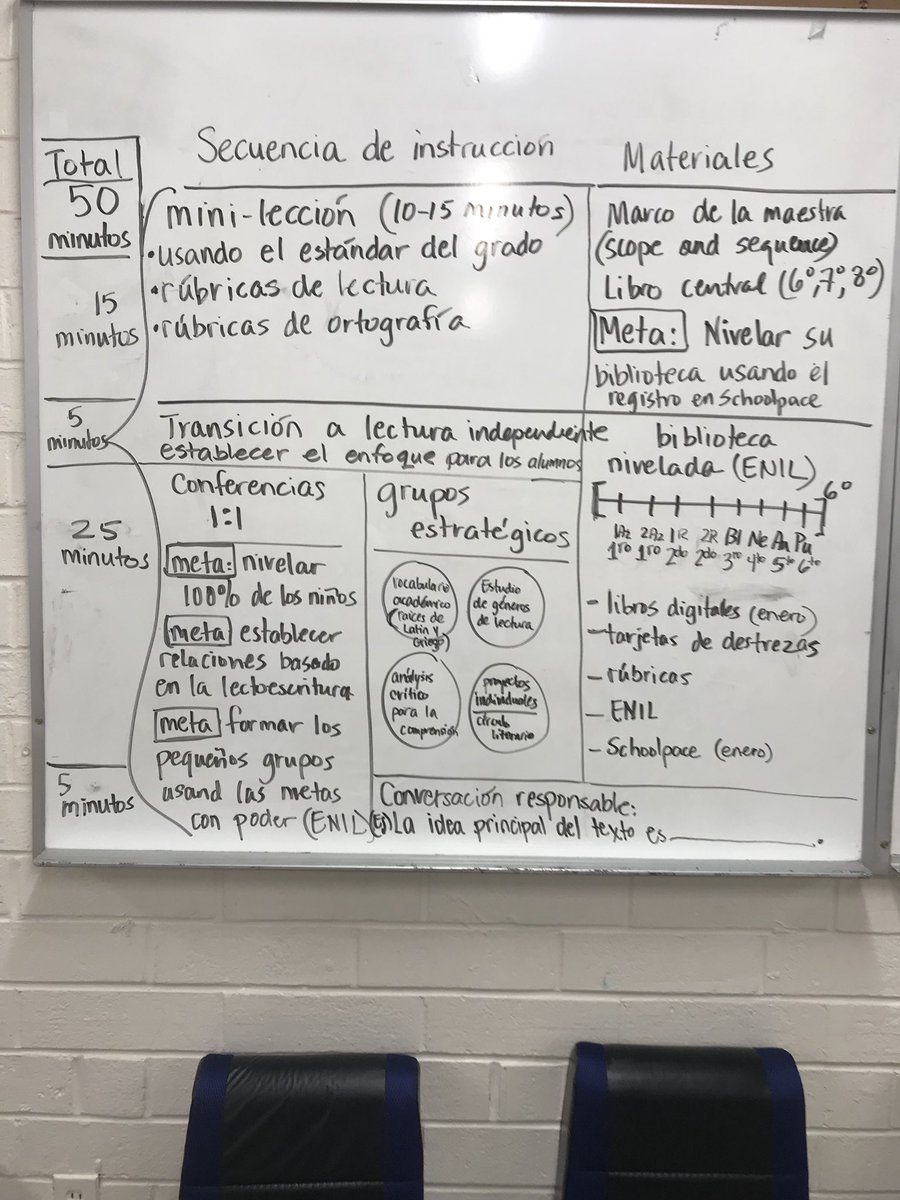 Total
50
minutos
15
minutos
5
minutos
25
minutos
5
minutos
Secuencia de instruccion
mini-lección (10-15 minutos)
•usando el estándar del grado
•rúbricas de lectura
•rúbricas de ortografía
Transición a lectura independiente
establecer el enfoque para los alumnos
Conferencias
1:1
meta: nivelar
100% de los niños
meta establecer
relaciones basado
en la lectoescritura
meta formar los
pequeños grupos
usand las metas
con poder (ENIL)
grupos
estratégicos
vocabulario
académico
(raíces de
Latín y
Griego)
Estudio
de géneros
de lectura
análysis
crítico
para la
comprensión
proyectos
individuales
círculo
literario
Conversación responsable:
(Ej) La idea principal del texto es ___________.
Materiales
Marco de la maestra
(scope and sequence)
Libro central (6º, 7º, 8º)
Meta: Nivelar su
biblioteca usando el
registro en Schoolpace
biblioteca
nivelada (ENIL)
6º
1Az 2Az 1R 2R Bl Ne An Pu
1ro 1ro 2do 2do 3ro 4to 5to 6to
- libros digitales (enero)
- tarjetas de destrezas
- rúbricas
- ENIL
- Schoolpace (enero)